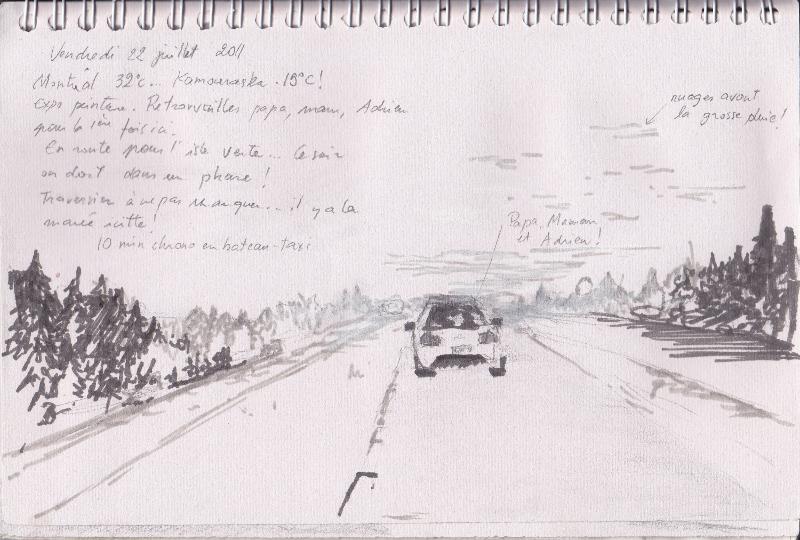 Vendredi 22 juillet 2011
Montréal 32°c... Kamouraska . 19°C!
expo peinture. Retrouvailles papa, mam, Adrien
pour la 1ère fois ici.
En route pour l'isle verte... Ce soir
on dort dans un phare !
Traversier à ne pas manquer... il y a la
marée icitte !
10 min chrono en bateau-taxi
nuages avant
la grosse pluie !
Papa, Maman
et Adrien !